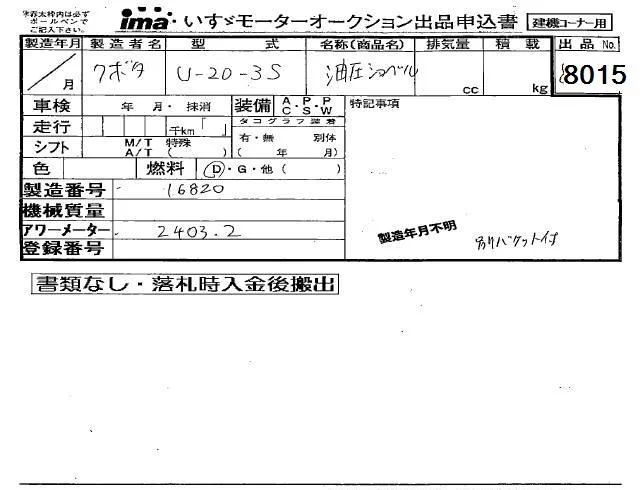 ※赤太枠内は必ず
ボールペンで
ご記入下さい。
ima・いすゞモーターオークション出品申込書
建機コーナー用
製造年月 製造者名 型 式 名称(商品名) 排気量 積載 出品No.
/月 クボタ U-20-3S 油圧ショベル cc kg 8015
車検 年 月・抹消 装備 A/C P・S P・W 特記事項
走行 千km「 」 タコグラフ装着
シフト M/T A/T 特殊( ) 有・無 別体 ( 年 月)
色 燃料 D・G・他( )
製造番号 16820
機械質量
アワーメーター 2403.2
登録番号
製造年月不明
別バケット付
書類なし・落札時入金後搬出